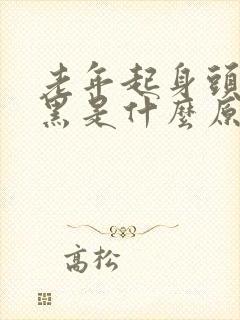 老年起身頭
黑是什麼原
高松